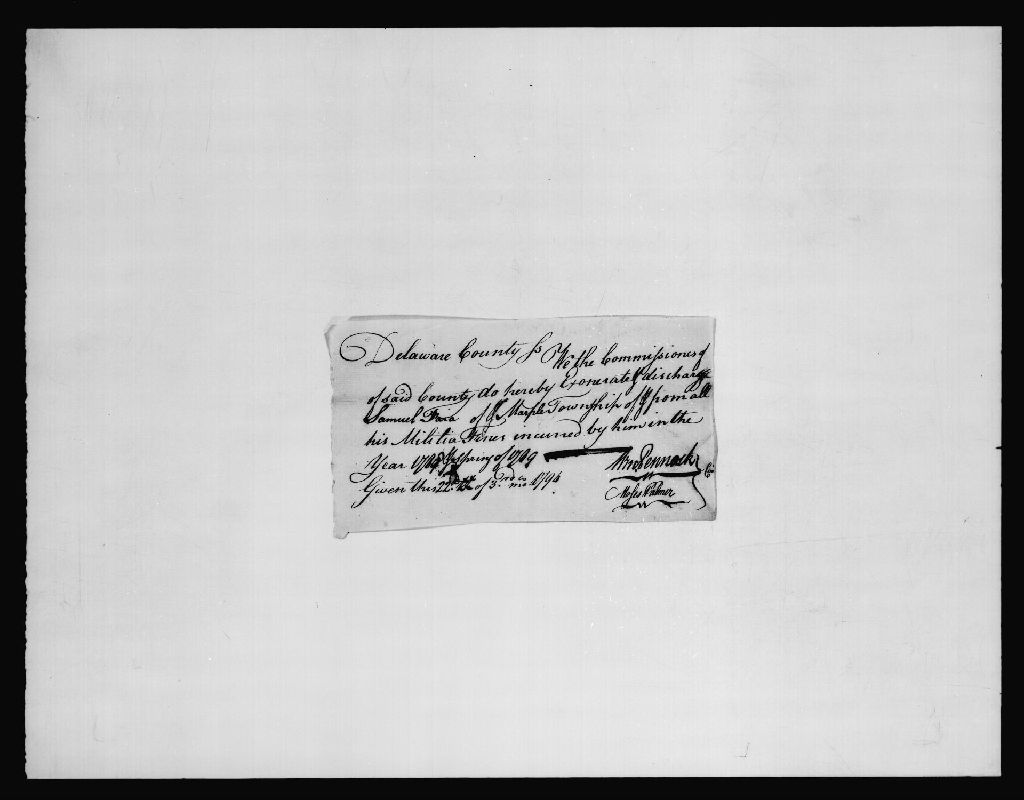 Delaware County ss We the Commissioners of
of said County do hereby Exonerate & discharge
Samuel of Marple Township of & from all
his Militia Fines incurred by him in the
Year & Spring of 1789
Given this 22nd of 3rd mo 1791
Wm Pennock
Moses Palmer